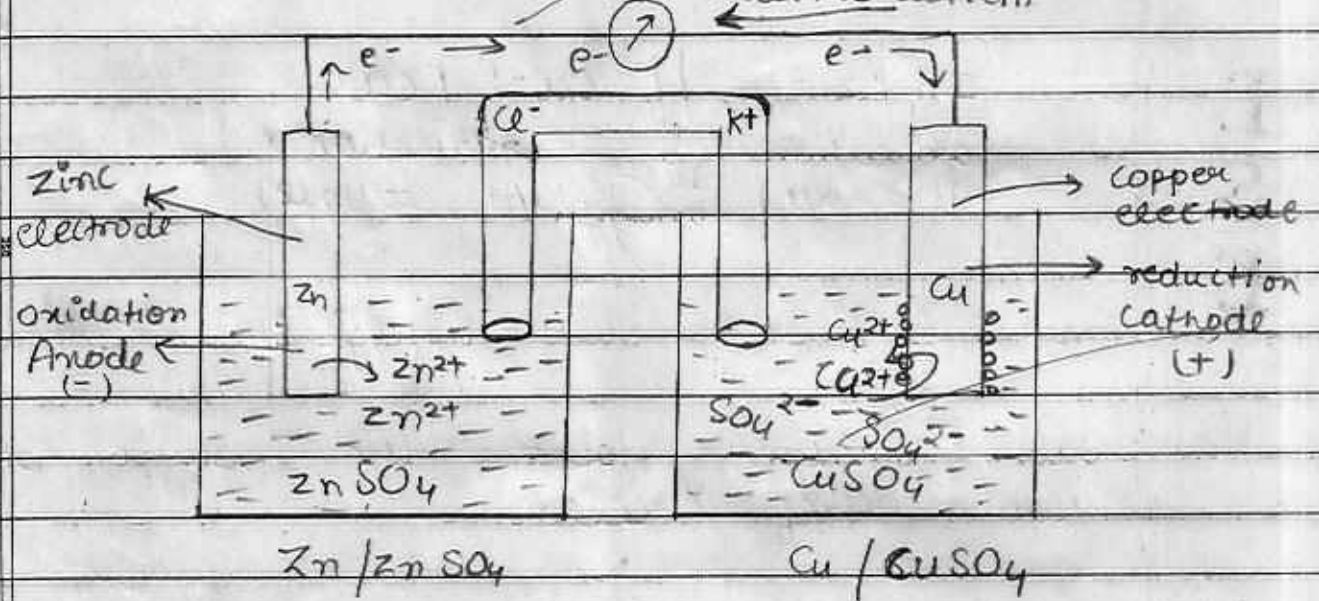 e- → e- e- →
Cl- K+
Zinc
electrode
copper
electrode
Zn
Cu
reduction
Cathode
(+)
oxidation
Anode
(-)
Cu2+
Zn2+
Zn2+
SO4 2-
SO4 2-
ZnSO4
CuSO4
Zn/ZnSO4
Cu/CuSO4